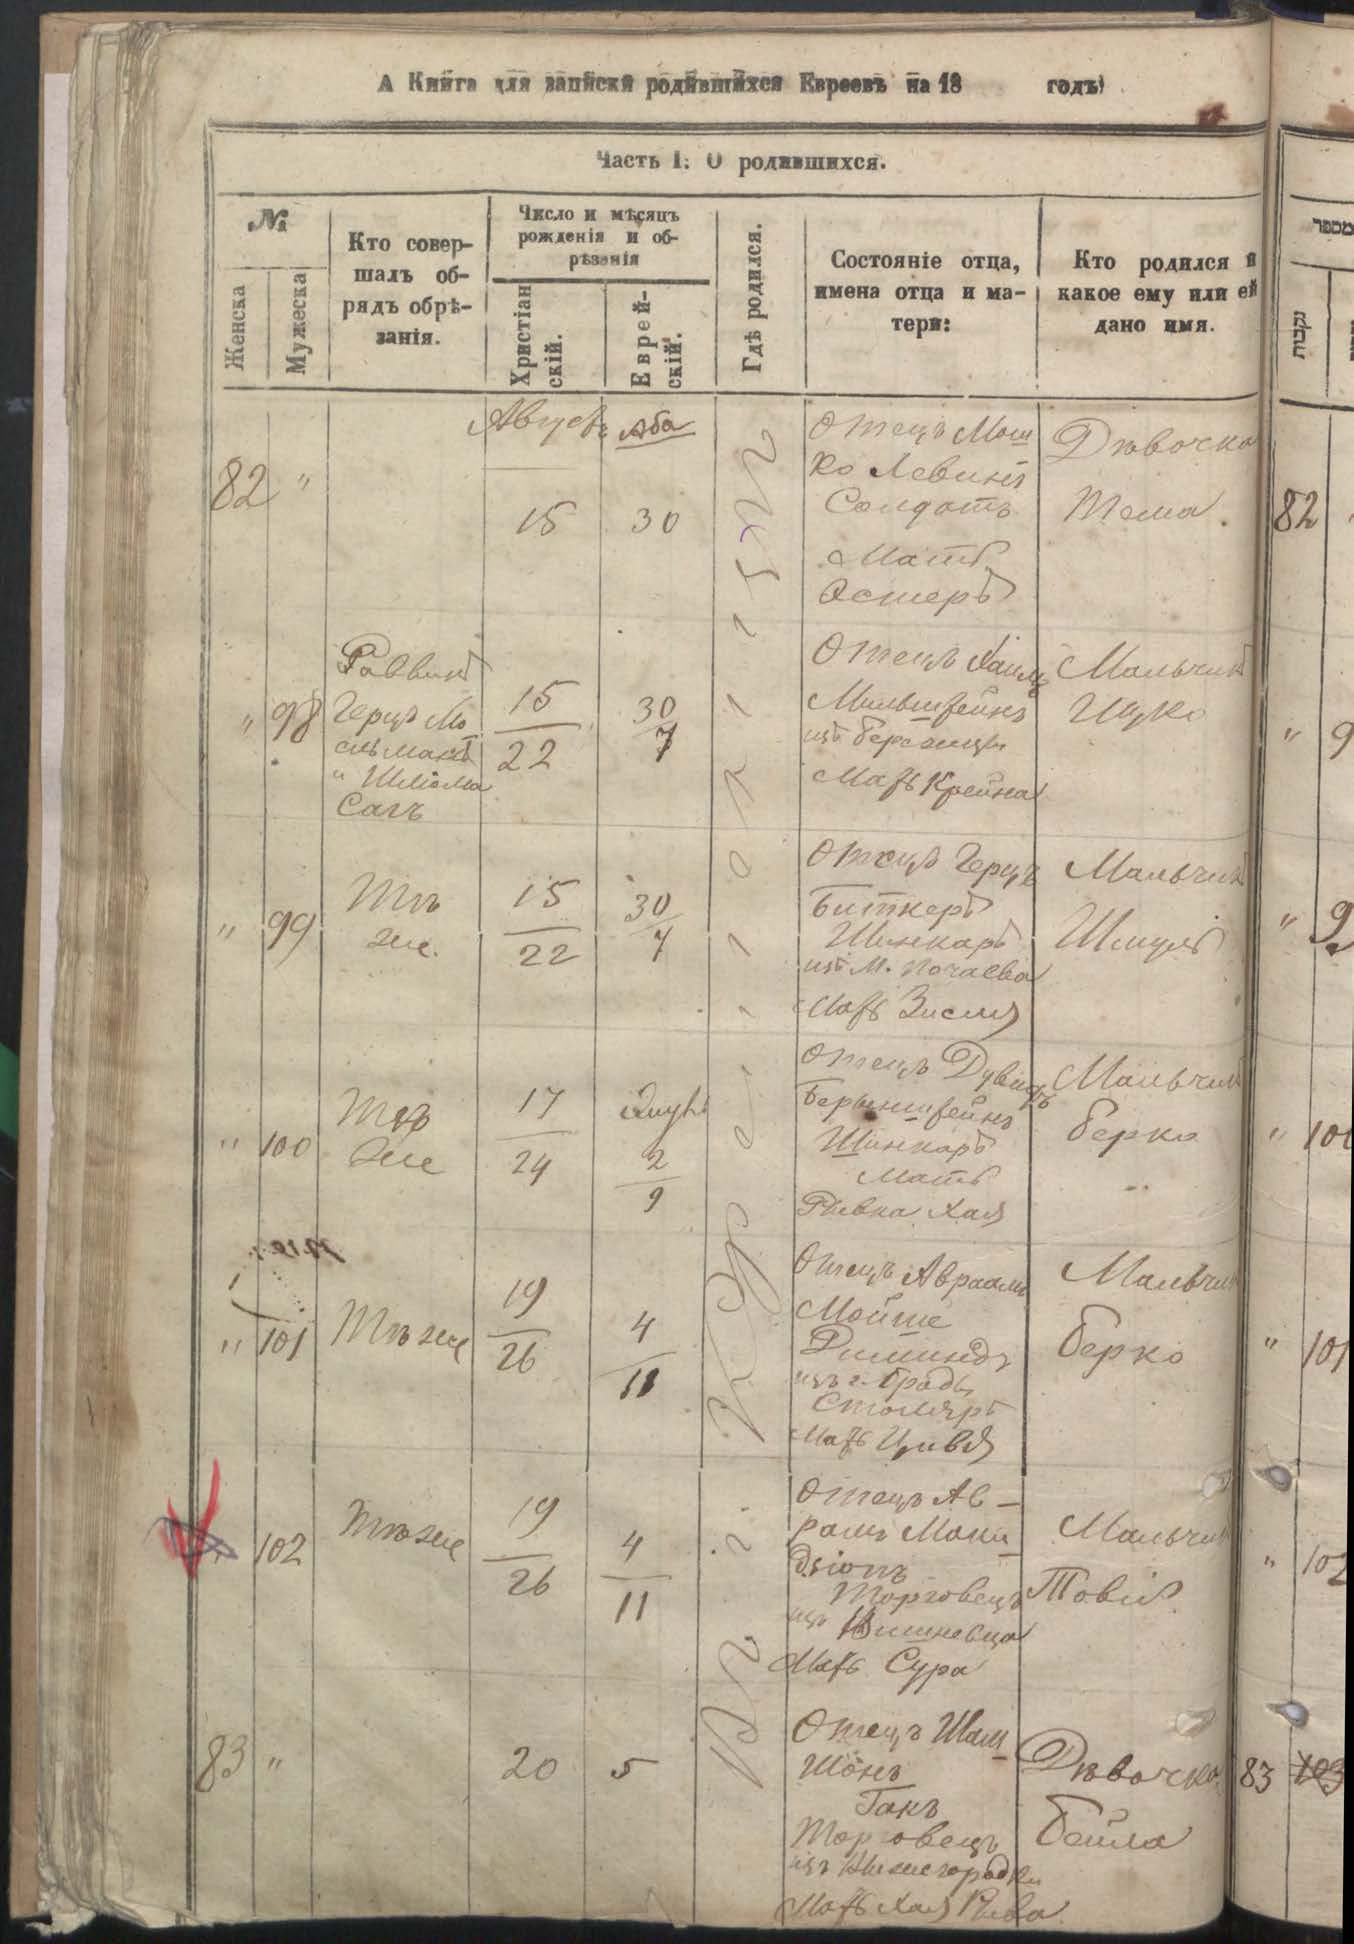 А Книга для записки родившихся Евреевъ на 18 годъ
Часть I: О родившихся.
№
Женска
Мужеска
Кто совер-
шалъ об-
рядъ обрѣ-
занія.
Число и мѣсяцъ
рожденія и об-
рѣзанія
Христіан
скій.
Еврей-
скій.
Гдѣ родился.
Состояніе отца,
имена отца и ма-
тери:
Кто родился и
какое ему или ей
дано имя.
מספר
נקבות
Августъ Аба
82 "
15 30
Отецъ Мош
ко Левинъ
Солдатъ
Мать
Эстеръ
Дѣвочка
Тема
82
" 98
Раввинъ
Герцъ
" Шліома
15
22
30
7
Отецъ Хаимъ
Мильштейнъ
изъ
Мать Крейна
Мальчикъ
Ицко
" 9
" 99
Тѣ
же.
15
22
30
7
Отецъ Герцъ
Биткеръ
Шинкаръ
изъ М. Почаева
Мать Зисля
Мальчикъ
Шмуль
" 9
" 100
Тѣ
же
17
24
2
9
Отецъ Дувидъ
Беренштейнъ
Шинкаръ
Мать
Ривка Хая
Мальчикъ
Берко
" 100
" 101
Тѣ же
19
26
4
11
Отецъ Авраамъ
Мойше
изъ г.
Столяръ
Мать Цивія
Мальчик
Берко
" 101
102
Тѣ же
19
26
4
11
Отецъ Ав-
рамъ
Торговецъ
изъ Вишневца
Мать Сура
Мальчик
Товія
" 102
83 "
20 5
Отецъ Шам
шонъ
Гакъ
Торговецъ
изъ
Мать Хая Рива
Дѣвочка
Бейла
83 103